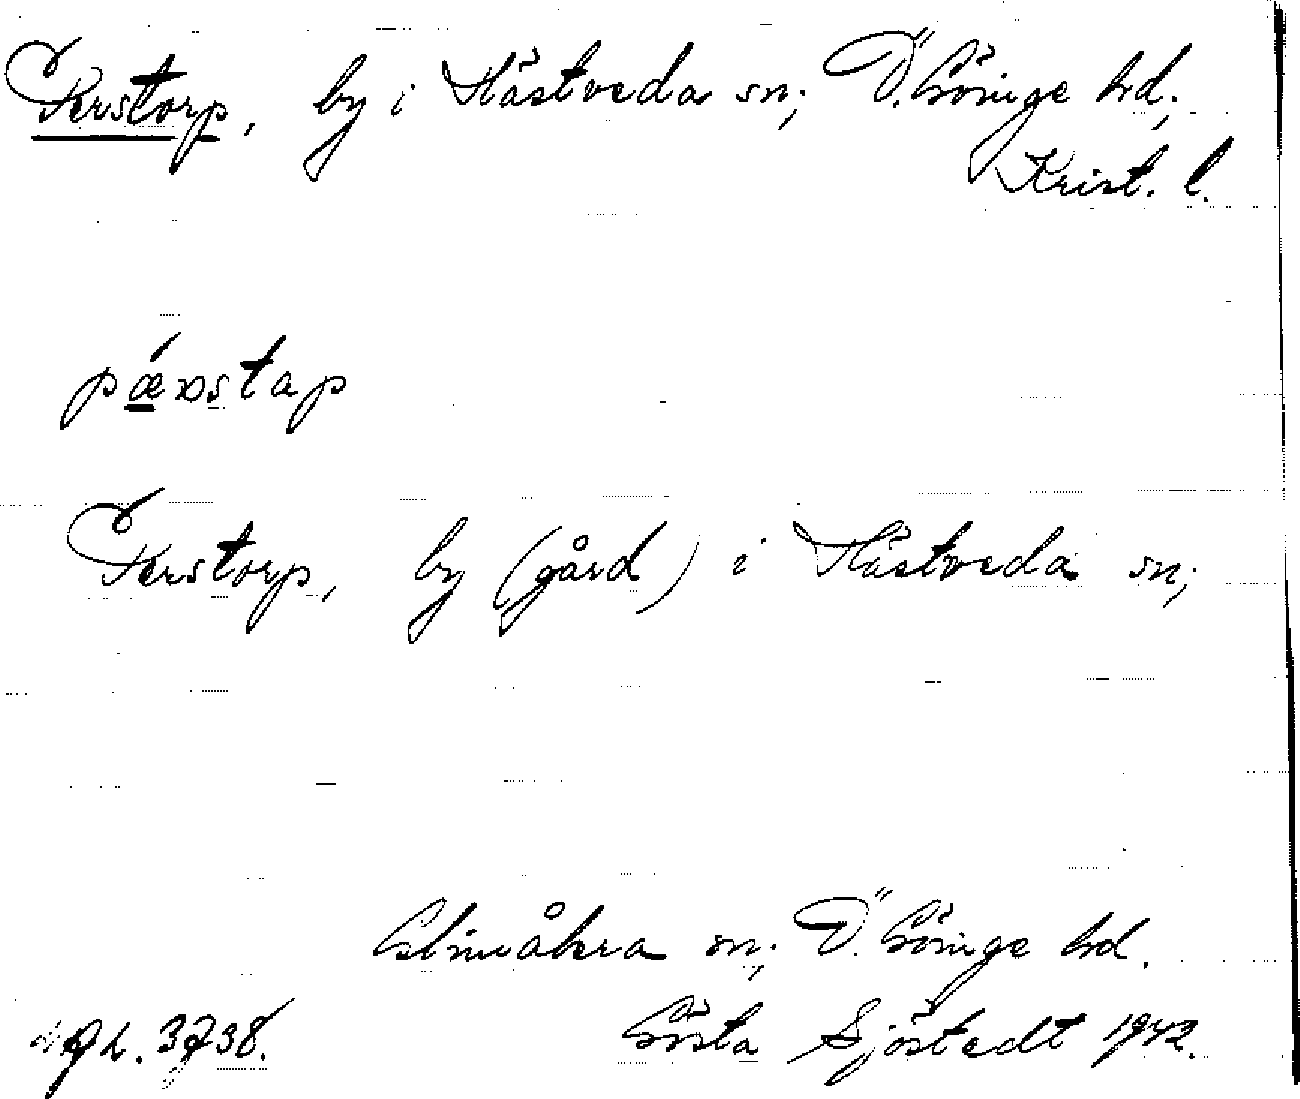 Perstorp, by i Hästveda sn; Ö. Göinge hd;
Krist. l.
pǽrstap
Perstorp, by (gård) i Hästveda sn;
Glimåkra sn; Ö. Göinge hd.
Gösta Sjöstedt 1942.